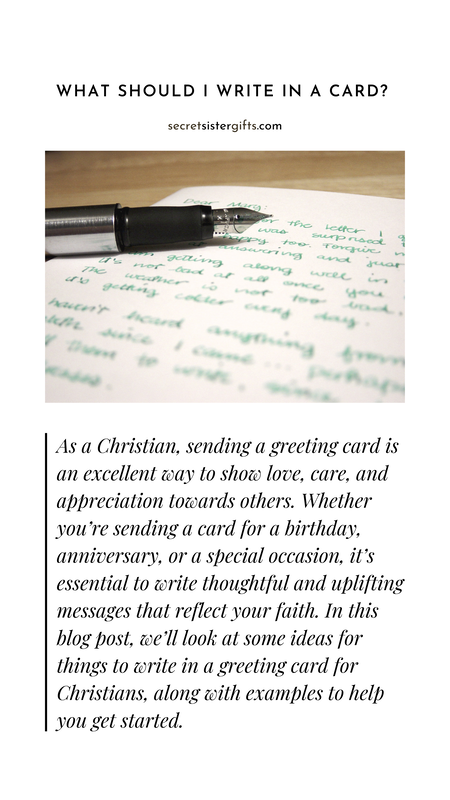 WHAT SHOULD I WRITE IN A CARD?
secretsistergifts.com
Dear Marg:
for the letter I g
was surprised t
happy too. Forgive m
answering and just
I'm getting along well in
it's not bad at all once you
The weather is not too bad.
it's getting colder every day.
haven't heard anything from
since I came ... perhaps
them to write, since
As a Christian, sending a greeting card is
an excellent way to show love, care, and
appreciation towards others. Whether
you're sending a card for a birthday,
anniversary, or a special occasion, it's
essential to write thoughtful and uplifting
messages that reflect your faith. In this
blog post, we'll look at some ideas for
things to write in a greeting card for
Christians, along with examples to help
you get started.